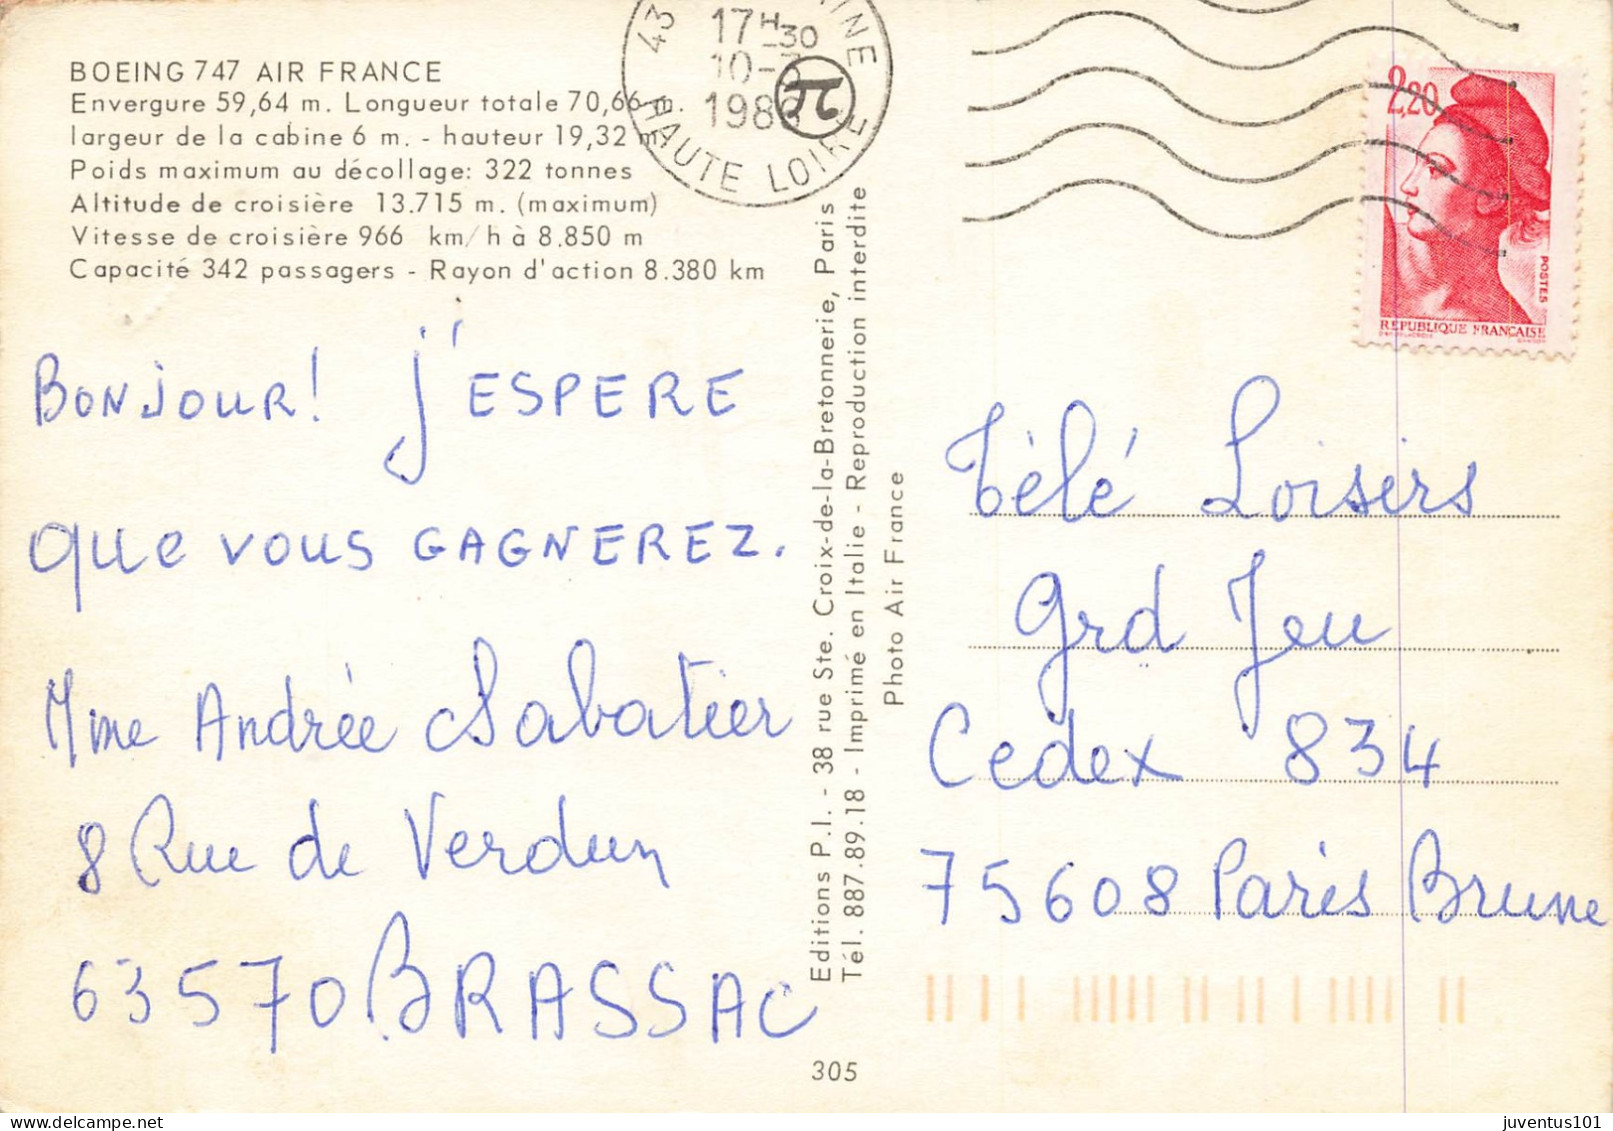 BOEING 747 AIR FRANCE
Envergure 59,64 m. Longueur totale 70,66 m.
largeur de la cabine 6 m. - hauteur 19,32 m
Poids maximum au décollage: 322 tonnes
Altitude de croisière 13.715 m. (maximum)
Vitesse de croisière 966 km/h à 8.850 m
Capacité 342 passagers - Rayon d'action 8.380 km
BONJOUR! J'ESPERE
QUE VOUS GAGNEREZ.
Mme Andrée Sabatier
8 Rue de Verdun
63570 BRASSAC
Editions P.I. - 38 rue Ste. Croix-de-la-Bretonnerie, Paris
Tél. 887.89.18 - Imprimé en Italie - Reproduction interdite
Photo Air France
305
43
17H-30
10-
HAUTE LOIRE
2,20
POSTES
REPUBLIQUE FRANCAISE
Télé Loisirs
Grd Jeu
Cedex 834
75608 Paris Brune
juventus101